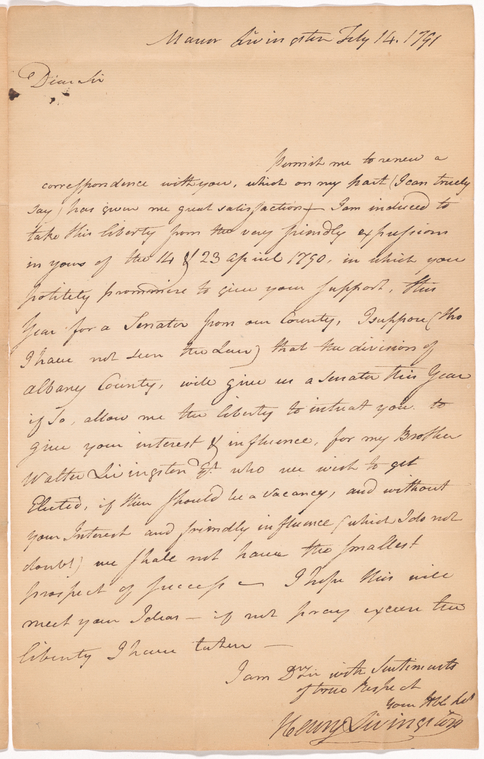 Manor Livingston Feby 14. 1791
Dear Sir
Permit me to renew a
correspondence with you, which on my part (I can truely
say) has given me great satisfaction — I am induced to
take this liberty from the very friendly expressions
in yours of the 14 & 23 april 1790, in which you
politely promise to give your support, this
Year for a Senator from our County, I suppose (tho
I have not seen the Law) that the division of
Albany County, will give us a Senator this Year
if So, allow me the liberty to intreat you to
give your interest & influence, for my Brother
Walter Livingston Esqr. who we wish to get
Elected, if there should be a vacancy, and without
your Interest and friendly influence (which I do not
doubt) we shall not have the smallest
prospect of success — I hope this will
meet your Ideas — if not pray excuse the
liberty I have taken —
I am Dr Sir with Sentiments
of true Respect
your Hble St
Henry Livingston